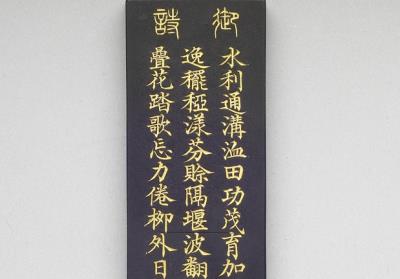 御詩
水利通溝洫田功茂育加
逸穲稏漾芬賒隔堰波翻
疊花踏歌忘力倦柳外日